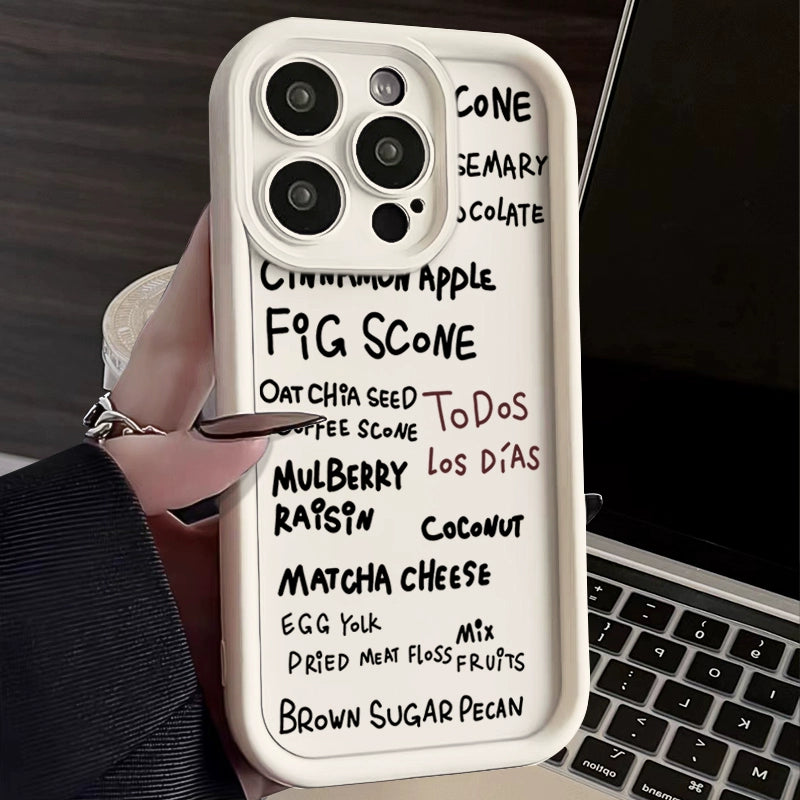 CONE
SEMARY
OCOLATE
CINNAMON APPLE
FIG SCONE
OAT CHIA SEED
COFFEE SCONE
TODOS
LOS DÍAS
MULBERRY
RAISIN
COCONUT
MATCHA CHEESE
EGG YOLK
MIX
DRIED MEAT FLOSS FRUITS
BROWN SUGAR PECAN
option
command
⌘